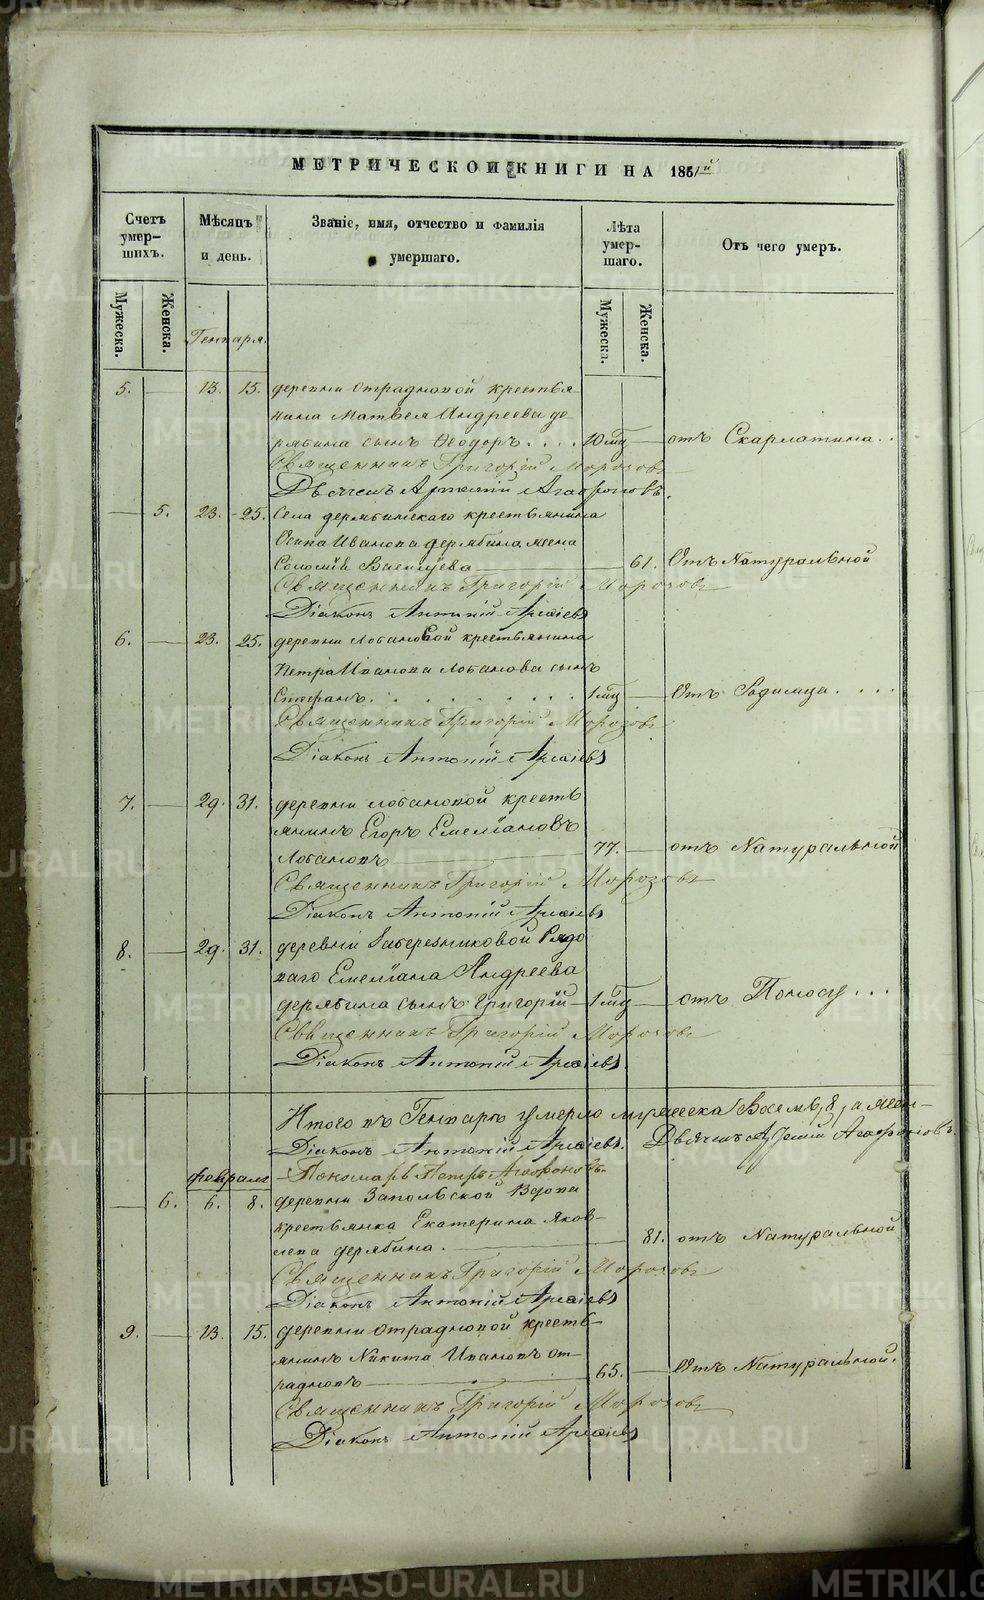 МЕТРИЧЕСКОЙ КНИГИ НА 1861й
Счетъ умер-шихъ.
Мѣсяцъ и день.
Званіе, имя, отчество и фамилія умершаго.
Лѣта умер-шаго.
Отъ чего умеръ.
Мужеска. Женска.
Мужеска. Женска.
Генваря.
5. 13. 15. деревни Отрадновой крестья
нина Матвея Андреева де
рябина сынъ Ѳеодоръ.... 10 мц отъ Скарлатина..
Священникъ Григорій Морозовъ
Дьячекъ Агафоновъ.
5. 23. 25. Села дерябинскаго крестьянина
Осипа Иванова дерябина жена
Соломія Васильева 61. Отъ Натуральной
Священникъ Григорій Морозовъ
Діаконъ Антоній
6. 23. 25. деревни Лобановой крестьянина
Петра Иванова Лобанова сынъ
Стефанъ. 1 мц Отъ Родимца....
Священникъ Григорій Морозовъ
Діаконъ Антоній
7. 29. 31. деревни лобановой кресть
янинъ Егоръ Емеліановъ
Лобановъ 77. отъ Натуральной
Священникъ Григорій Морозовъ
Діаконъ Антоній
8. 29. 31. деревни Заберезниковой Рядо
ваго Емеліана Андреева
дерябина сынъ Григорій 1 мц отъ Поносу...
Священникъ Григорій Морозовъ
Діаконъ Антоній
Итого въ Генварѣ умерло мужеска Восемь, 8, а жен-
Діаконъ Антоній Дьячекъ Агафоновъ.
февраля Пономарь Петръ Агафоновъ
6. 6. 8. деревни Запольской Вдова
крестьянка Екатерина Яков-
лева дерябина. 81. отъ Натуральной
Священникъ Григорій Морозовъ
Діаконъ Антоній
9. 13. 15. деревни Отрадновой кресть-
янинъ Никита Ивановъ От-
радновъ 65. Отъ Натуральной.
Священникъ Григорій Морозовъ
Діаконъ Антоній
METRIKI.GASO-URAL.RU